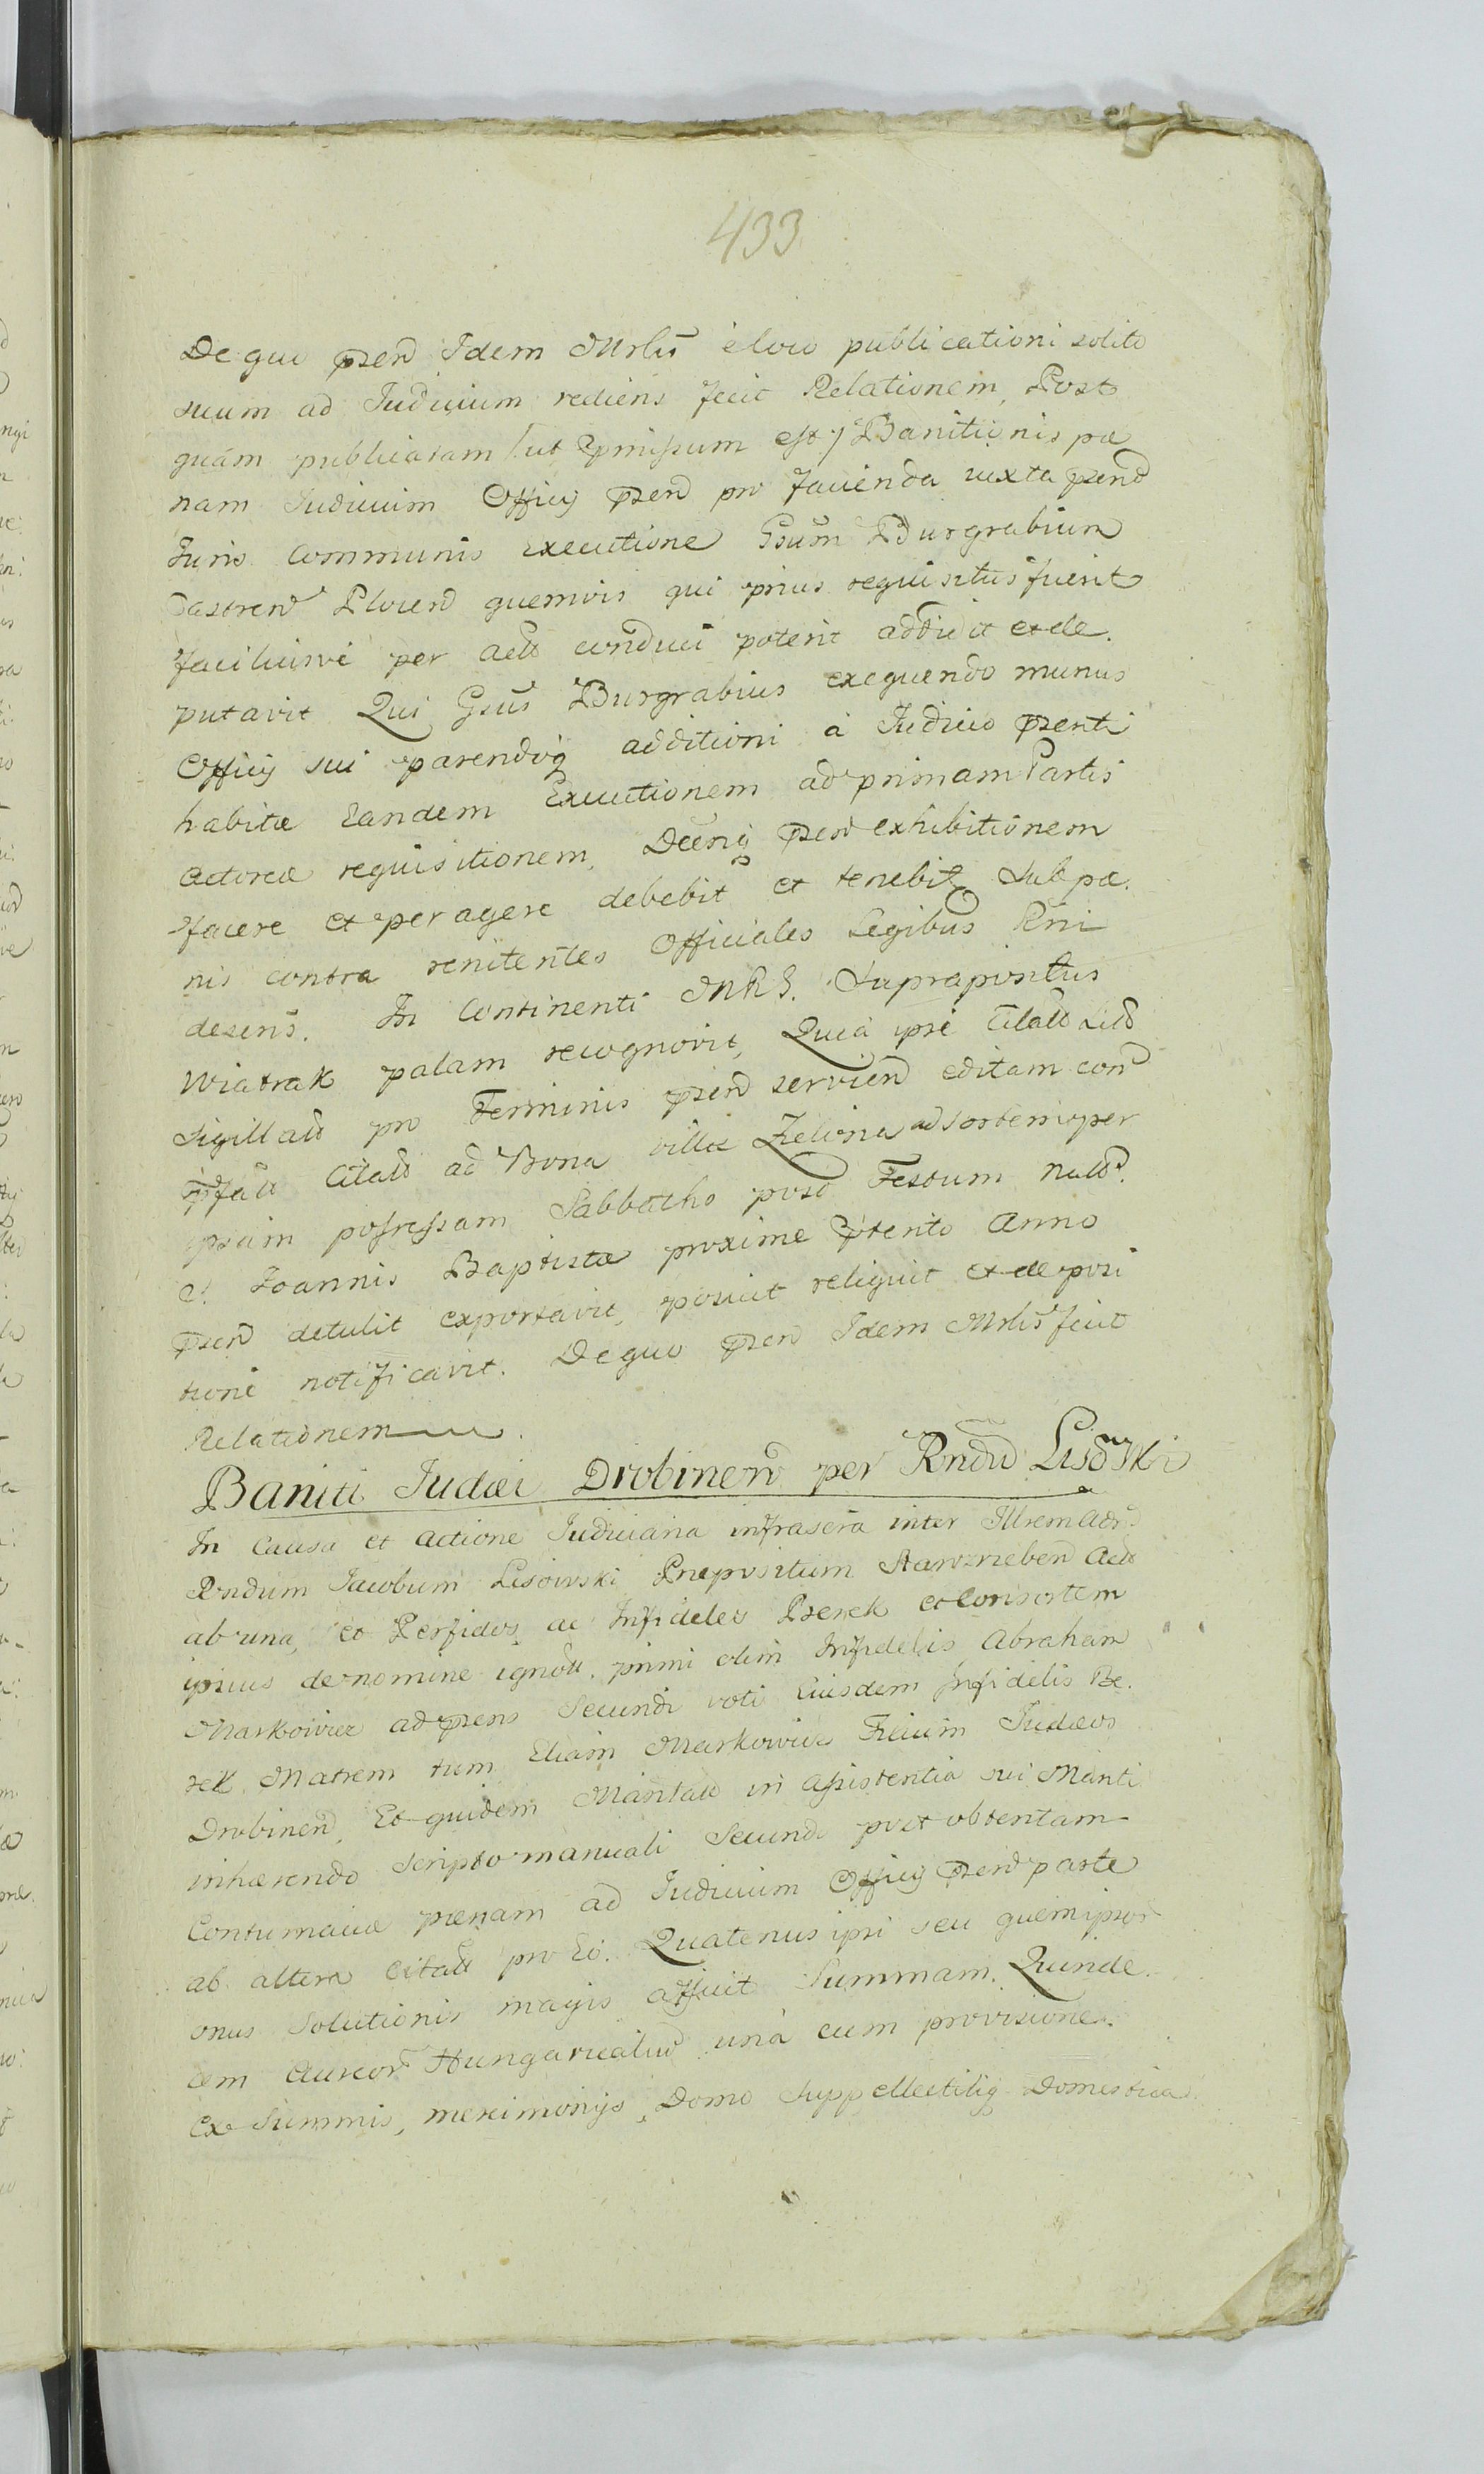 433
De quo pnsen Idem Mrlis è loco publicationi solito
suum ad Judicium rediens fecit Relationem, Post
quam publicatam /:ut pmissum est:/ Banitionis pæ
nam Judicium Officij psen pro facienda iuxta psen
Juris Communis executione Gsum Burgrabium
Castren Plocen quemvis qui prius requisitus fuerit
faciliusve per Act conduci poterit addidit et de.
putavit Qui Gsus Burgrabius exequendo munus
Officij sui parendoq additioni à Judicio psenti
habitæ Eandem Executionem ad primam Partis
Actoreæ requisitionem, Decrtiq psen exhibitionem
facere et peragere debebit et tenebitr Sub pæ.
nis contra renitentes Officiales Legibus Rni
descris. In Continenti MRG. Suprapositus
Wiatrak palam recognovit, Quia ipse Citaon Litt
Sigillatt pro Terminis psen servien editam con
prfatt Citatt ad Bona villæ Zelona ad sortem per
ipsam possessam Sabbatho post Festum Natt
S. Joannis Baptistæ proxime prterito Anno
psen detulit exportavit, posuit reliquit et de posi
tione notificavit. De quo psen Idem Mrlis fecit
Relationem
Baniti Judæi Drobinen per Rndum Lisowski
In Causa et Actione Judiciaria infrascra inter Illrem Adr
Rndum Jacobum Lisowski Præpositum Staroźreben Act
ab una, et Perfidos ac Infideles Berek et Consortem
ipsius de nomine ignott. primi olim Infidelis Abraham
Markowicz ad psens Secundi voti Eiusdem Infidelis Be.
rek Matrem tum Eliam Markowicz Filium Judæos
Drobinen, Et quidem Mantatt in Assistentia sui Manti
inhærendo Scripto manuali Secund post obtentam
Contumaciæ pænam ad Judicium Officij psen parte
ab altera Citatt pro Eo. Quatenus ipsi seu quem ipsor
onus Solutionis magis afficit Summam Quinde.
cem Aureor Hungaricaliu unà cum provisione.
Ex Summis, mercimonijs, Domo Suppellectiliq Domestica